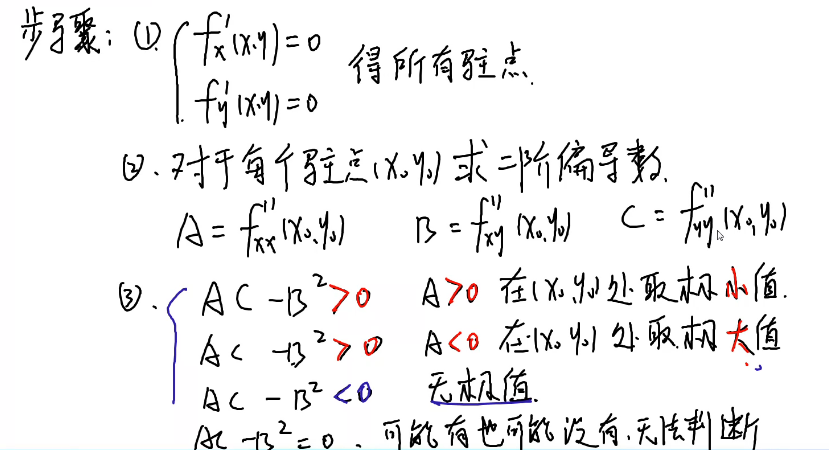 步骤：①. { f'x(x,y)=0
f'y(x,y)=0
得所有驻点.
②. 对于每个驻点(x₀,y₀) 求二阶偏导数.
A = f''xx(x₀,y₀) B = f''xy(x₀,y₀) C = f''yy(x₀,y₀)
③. { AC - B² > 0 A>0 在(x₀,y₀)处取极小值.
AC - B² > 0 A<0 在(x₀,y₀)处取极大值
AC - B² < 0 无极值.
AC - B² = 0. 可能有也可能没有.无法判断